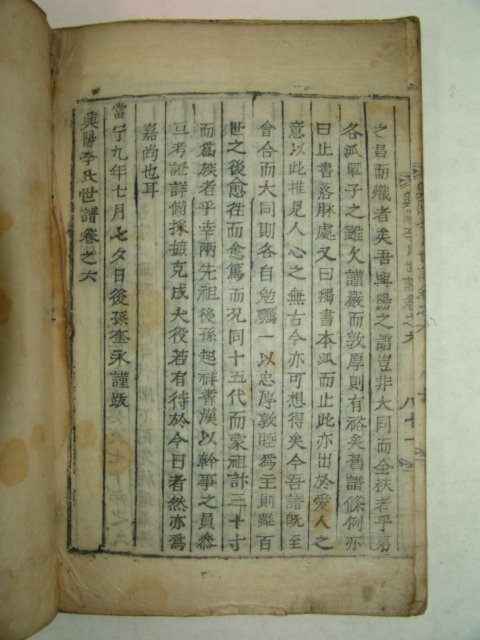 之昌而熾者矣吾興陽之譜豈非大同而全秩者乎第
各派單子之雖欠謹嚴而敦厚則有裕矣舊譜條例亦
曰止書落脉處又曰獨書本派而止此亦出於愛人之
意以此推見人心之無古今亦可想得矣今吾譜既至
會合而大同則各自勉勵一以忠厚敦睦爲主則雖百
世之後愈往而愈篤而况同十五代而蒙祖討三十寸
而爲族者乎幸兩先祖後孫起祥書漢以幹事之員叅
互考證詳備採摭克成大役若有待於今日者然亦爲
嘉尚也耳
當宁九年七月七夕日後孫奎永謹跋
興陽李氏世譜卷之六
興陽李氏世譜卷之六
八十一